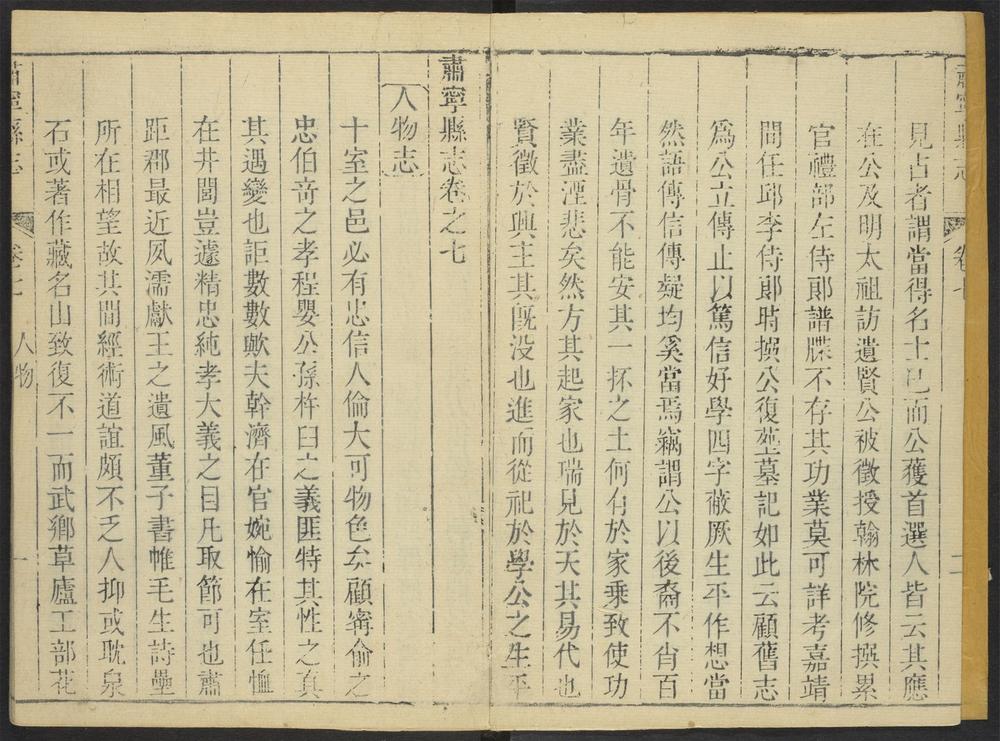 肅寧縣志 卷七 二
見占者謂當得名士已而公獲首選人皆云其應
在公及明太祖訪遺賢公被徵授翰林院修撰累
官禮部左侍郎譜牒不存其功業莫可詳考嘉靖
間任邱李侍郎時撰公復塋墓記如此云顧舊志
爲公立傳止以篤信好學四字蔽厥生平作想當
然語傳信傳疑均奚當焉竊謂公以後裔不肖百
年遺骨不能安其一抔之土何有於家乗致使功
業盡湮悲矣然方其起家也瑞見於天其易代也
賢徵於興主其旣没也進而從祀於學公之生平
肅寧縣志卷之七
人物志
十室之邑必有忠信人倫大可物色矣顧甯俞之
忠伯奇之孝程嬰公孫杵臼之義匪特其性之真
其遇變也詎數數歟夫幹濟在官婉愉在室任恤
在井閭豈遽精忠純孝大義之目凡取節可也肅
距郡最近夙濡獻王之遺風董子書帷毛生詩壘
所在相望故其間經術道誼頗不乏人抑或耽泉
石或著作藏名山致復不一而武鄉草廬工部花
肅寧縣志 卷七 人物 一